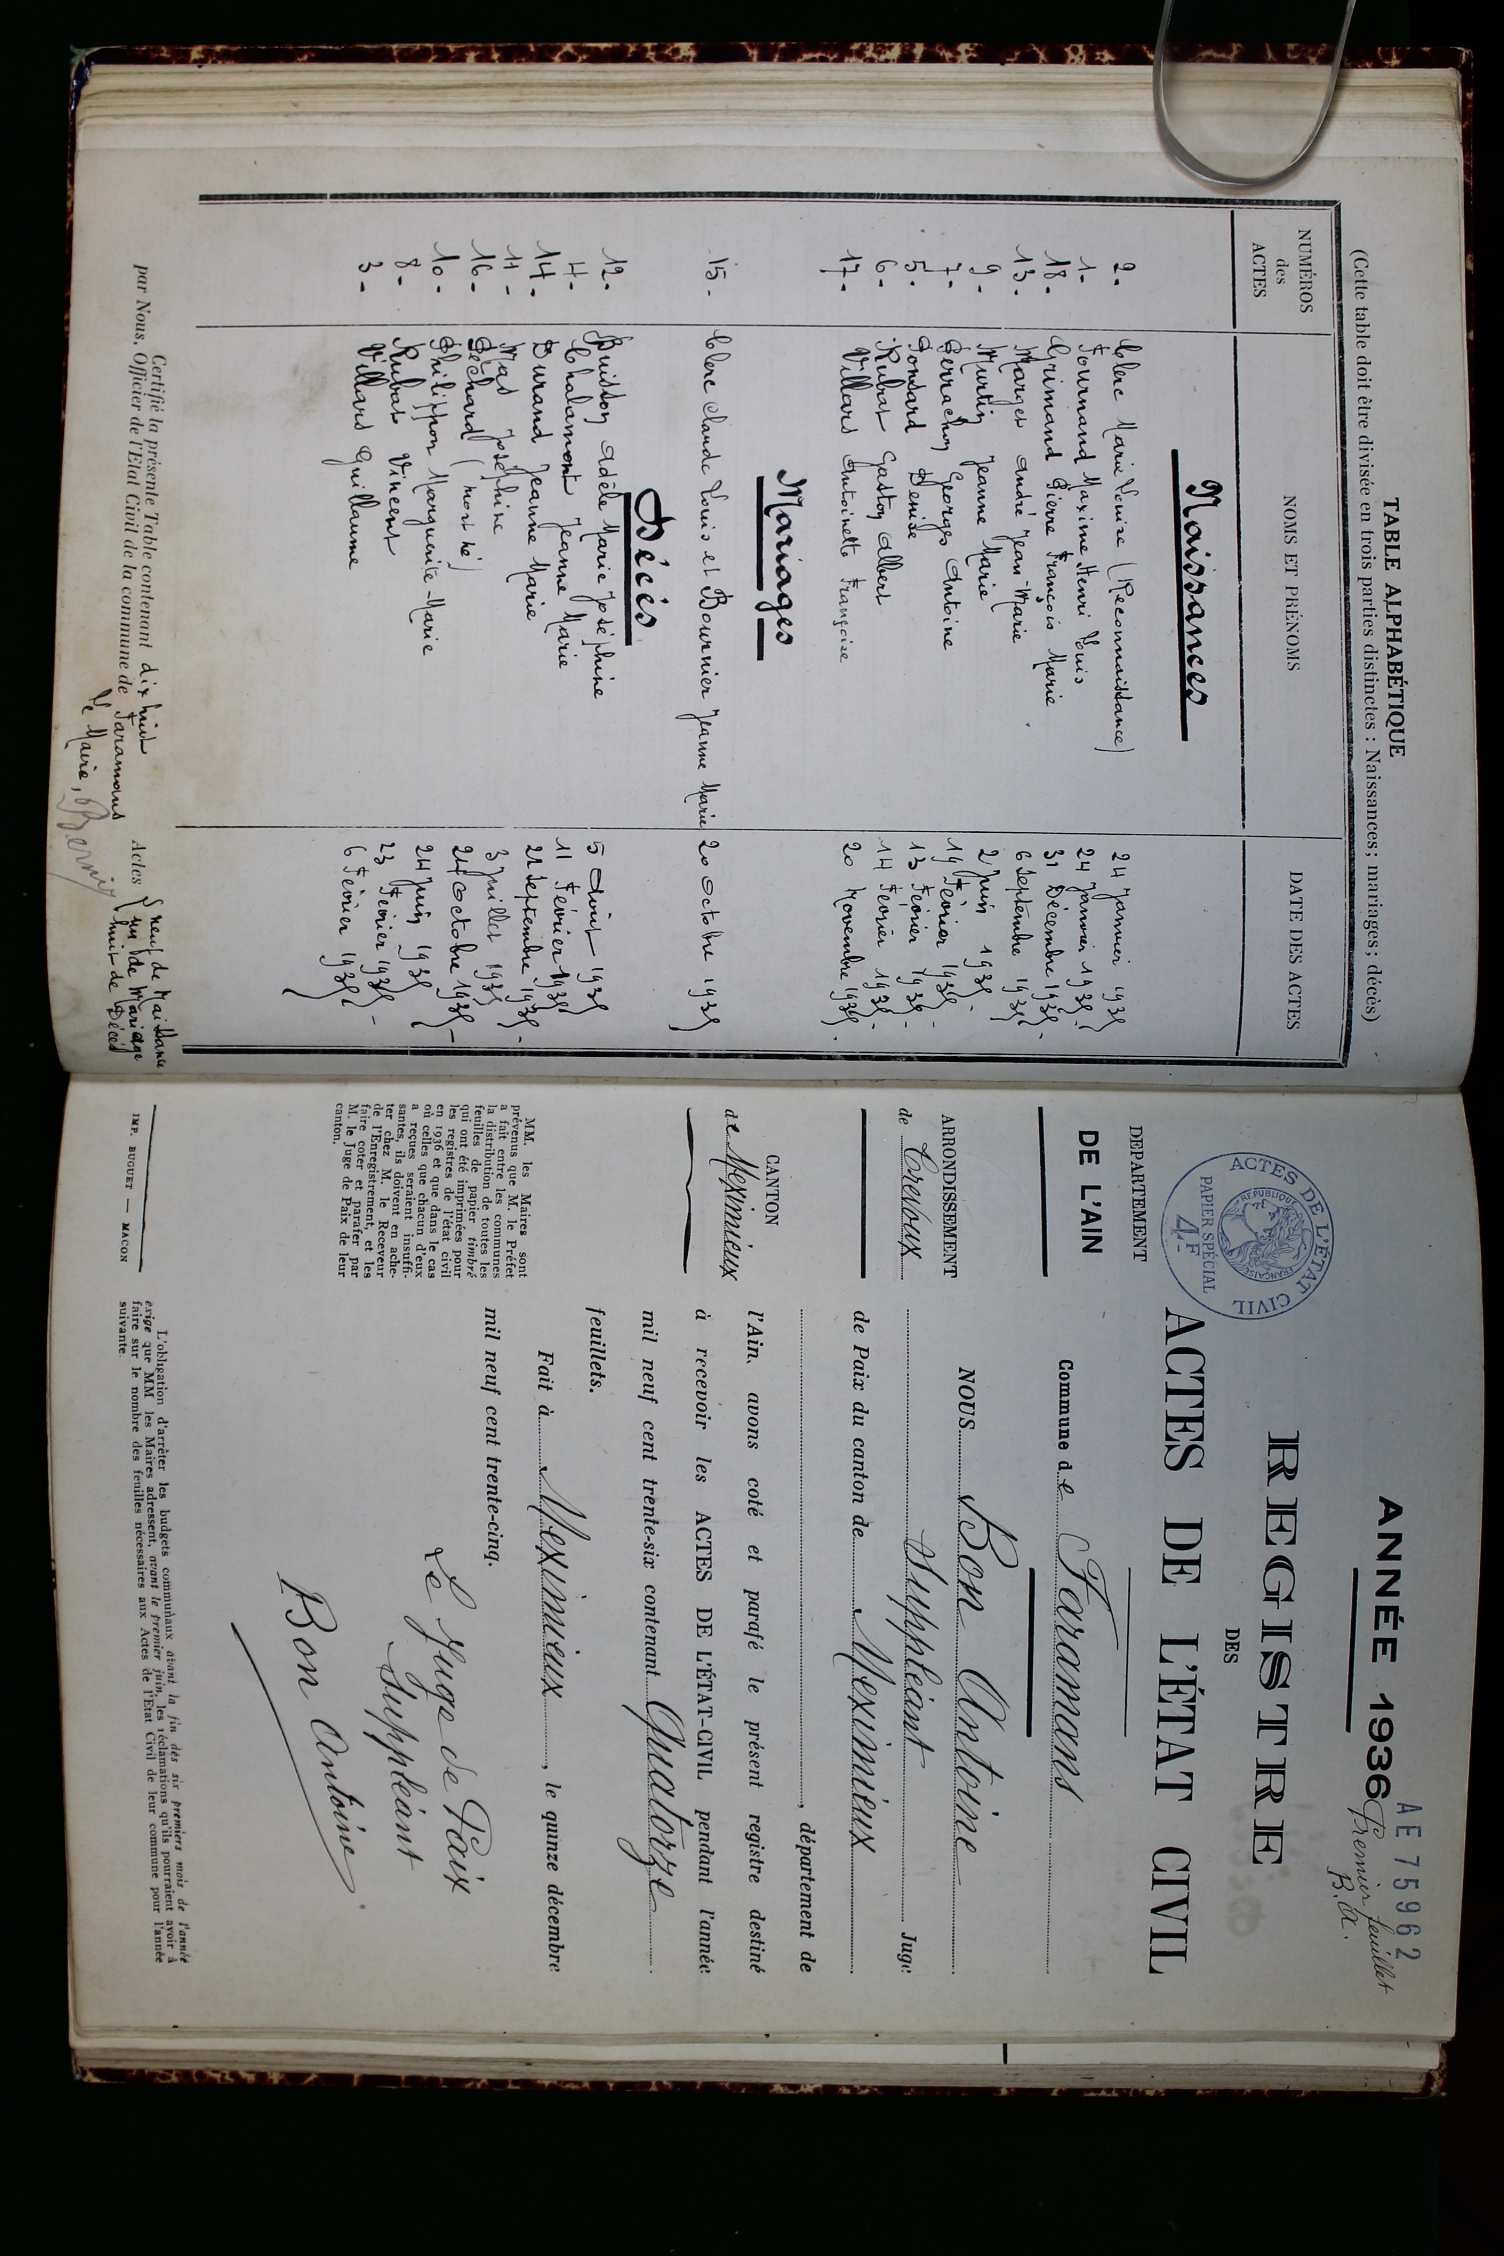 TABLE ALPHABÉTIQUE
(Cette table doit être divisée en trois parties distinctes : Naissances; mariages; décès)
NUMÉROS des ACTES NOMS ET PRÉNOMS DATE DES ACTES
Naissances
2- Clerc Marie Louise (Reconnaissance) 24 Janvier 1935
1- Fournand Maxime Henri Louis 24 Janvier 1935
18- Grimand Pierre François Marie 31 Décembre 1935
13- Marget André Jean-Marie 6 Septembre 1935
9- Murtin Jeanne Marie 2 Juin 1935
7- Perrachon Georges Antoine 19 Février 1935
5- Ponsard Denise 13 Février 1935
6- Rubat Gaston Albert 14 Février 1935
17- Villard Antoinette Françoise 20 Novembre 1935
Mariages
15- Clerc Claude Louis et Bournier Jeanne Marie 20 Octobre 1935
Décès
12- Buisson Adèle Marie Joséphine 5 Août 1935
4- Chalamont Jeanne Marie 11 Février 1935
14- Durand Jeanne Marie 22 Septembre 1935
11- Mas Joséphine 3 Juillet 1935
16- Péchard (mort né) 24 Octobre 1935
10- Philippon Marguerite-Marie 24 Juin 1935
8- Rubat Vincent 23 Février 1935
3- Villard Guillaume 6 Février 1935
Certifié la présente Table contenant dix huit Actes { neuf de Naissance
un de Mariage
huit de Décès
par Nous, Officier de l'Etat Civil de la commune de Faramans
Le Maire,
AE 75962
ANNÉE 1936
Premier feuillet
B. A.
REGISTRE
DES
ACTES DE L'ÉTAT CIVIL
ACTES DE L'ÉTAT CIVIL
RÉPUBLIQUE FRANÇAISE
PAPIER SPÉCIAL
4F
DEPARTEMENT
DE L'AIN
ARRONDISSEMENT
de Trévoux
CANTON
de Meximieux
MM. les Maires sont
prévenus que M. le Préfet
a fait entre les communes
la distribution de toutes les
feuilles de papier timbré
qui ont été imprimées pour
les registres de l'état civil
en 1936 et que dans le cas
où celles que chacun d'eux
a reçues seraient insuffi-
santes, ils doivent en ache-
ter chez M. le Receveur
de l'Enregistrement, et les
faire coter et parafer par
M. le Juge de Paix de leur
canton.
IMP. BUGUET — MACON
Commune de Faramans
NOUS Bon Antoine
Suppléant Juge
de Paix du canton de Meximieux
, département de
l'Ain, avons coté et parafé le présent registre destiné
à recevoir les ACTES DE L'ÉTAT-CIVIL pendant l'année
mil neuf cent trente-six contenant Quatorze
feuillets.
Fait à Meximieux, le quinze décembre
mil neuf cent trente-cinq.
Le Juge de Paix
Suppléant
Bon Antoine
L'obligation d'arrêter les budgets communaux avant la fin des six premiers mois de l'année
exige que MM les Maires adressent, avant le premier juin, les réclamations qu'ils pourraient avoir à
faire sur le nombre des feuilles nécessaires aux Actes de l'Etat Civil de leur commune pour l'année
suivante.